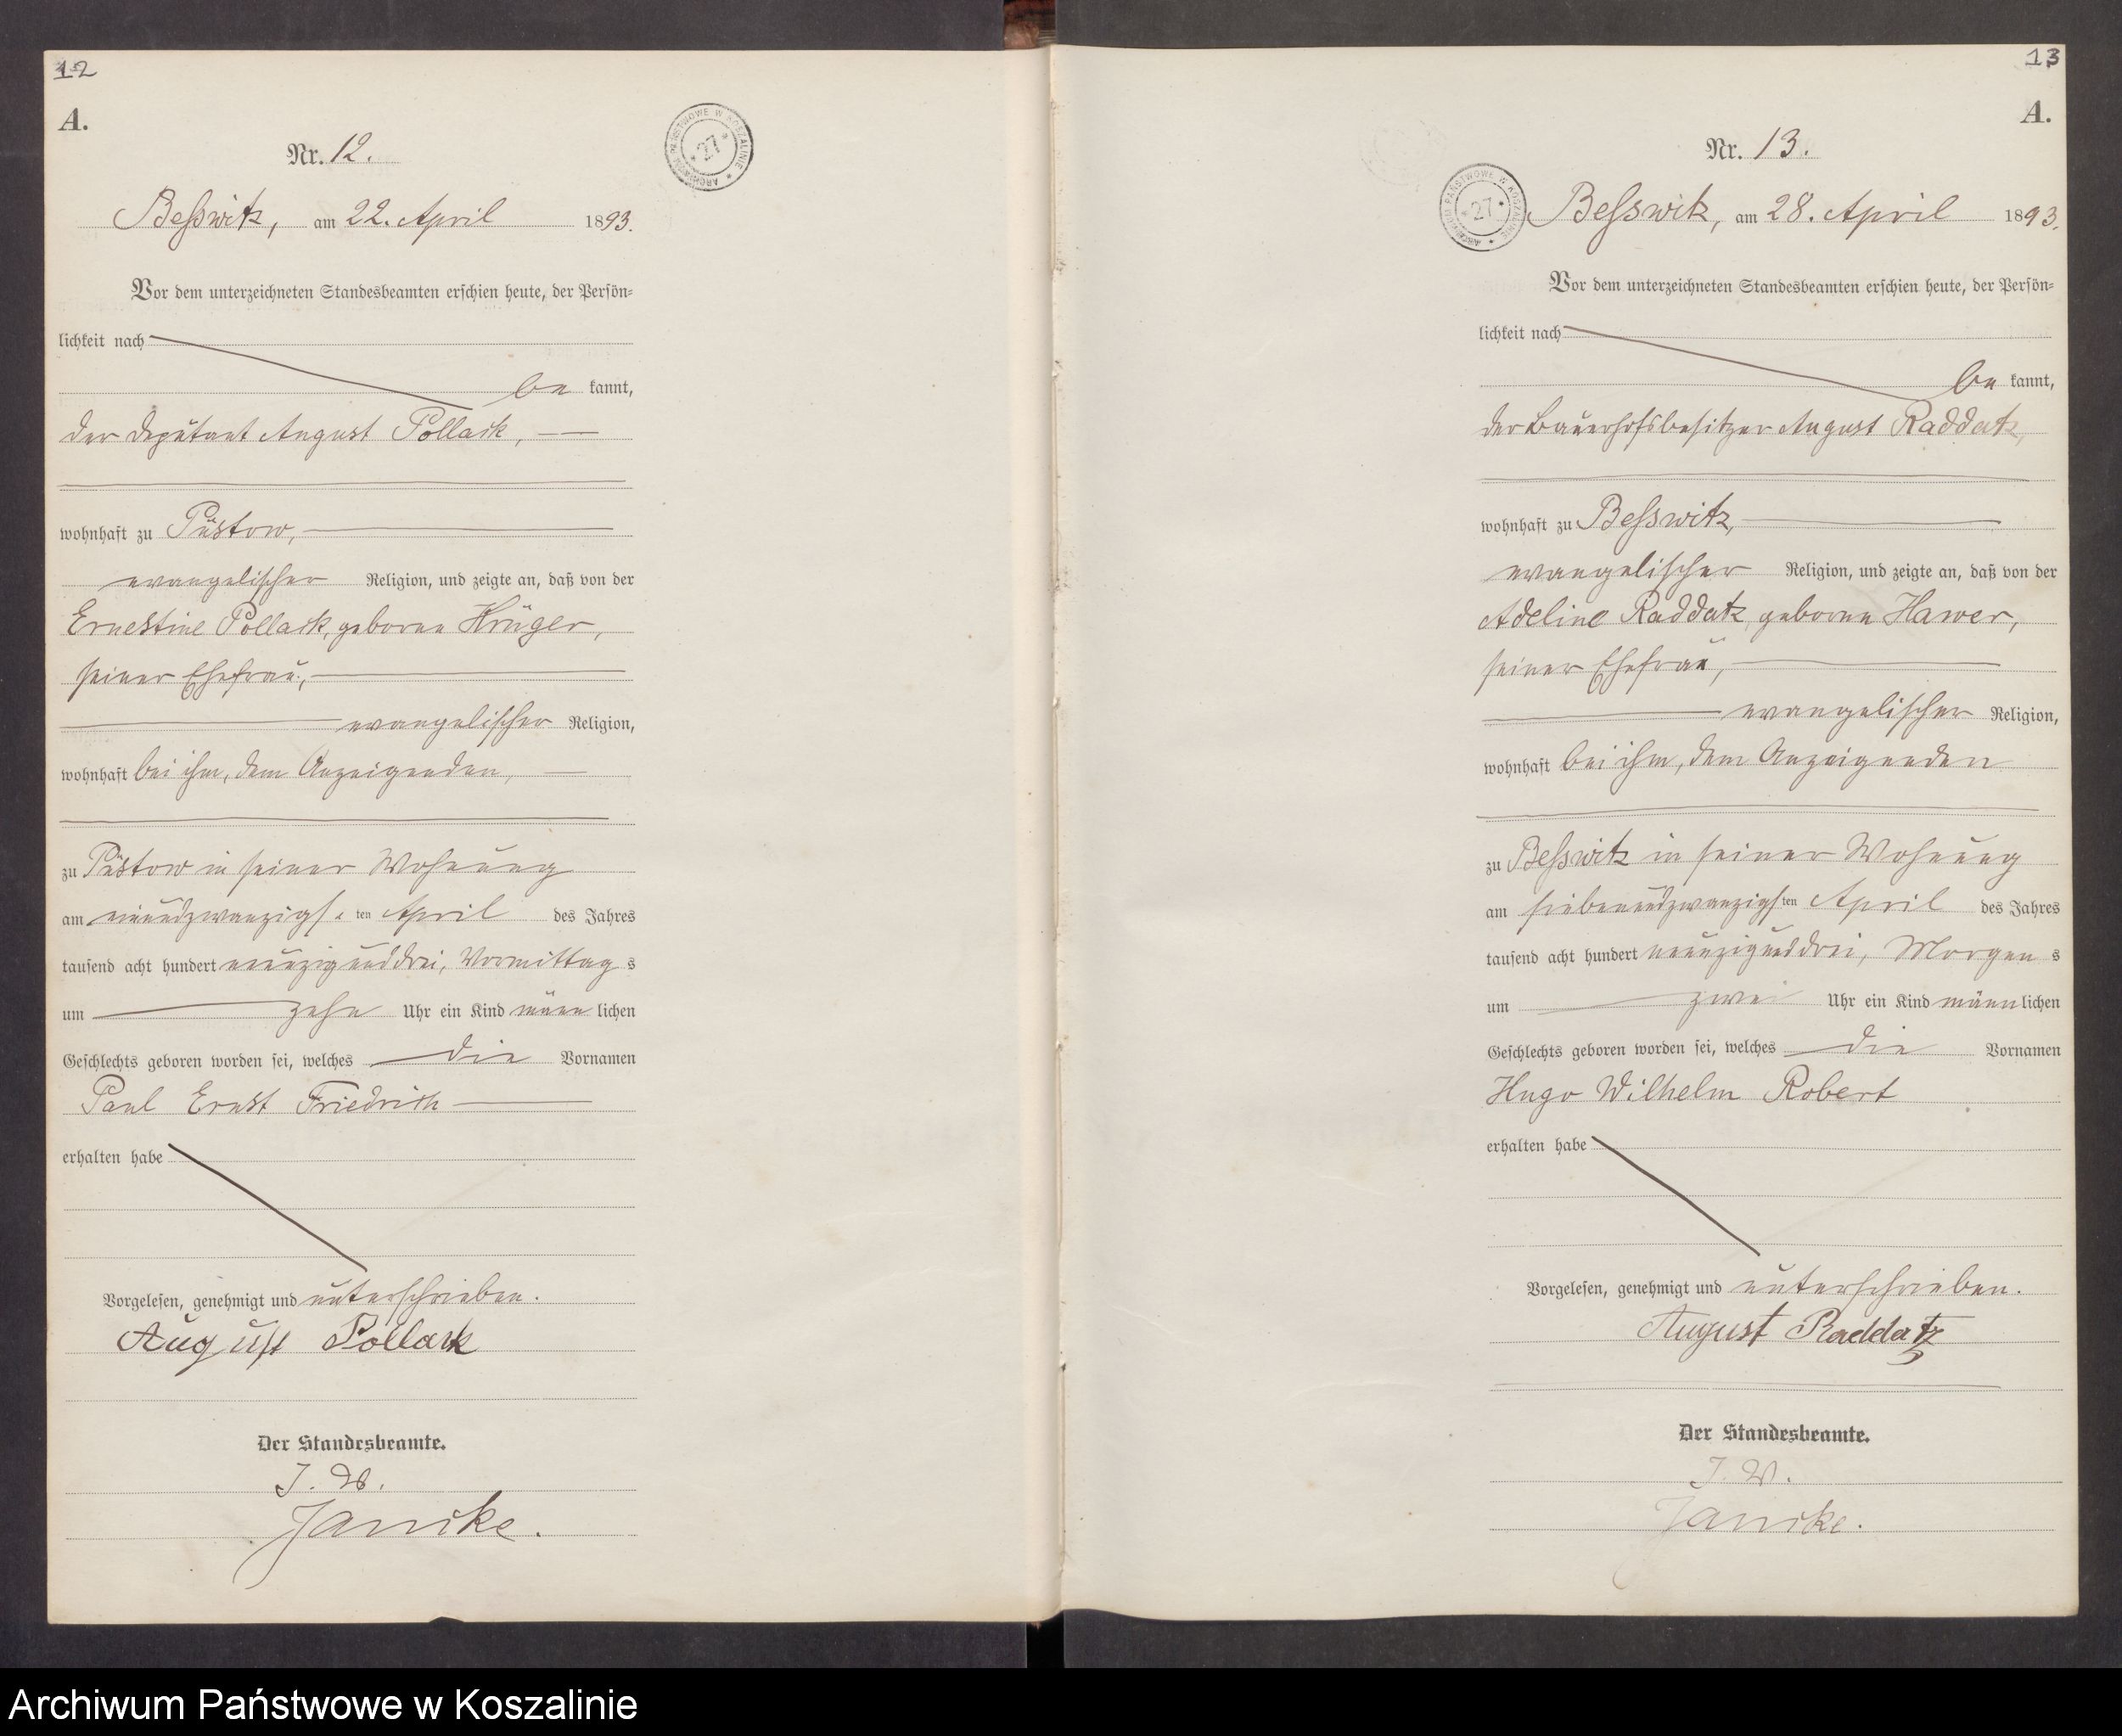 12
A.
Nr. 12.
ARCHIWUM PAŃSTWOWE W KOSZALINIE * 27 *
Beßwitz, am 22. April 1893.
Vor dem unterzeichneten Standesbeamten erschien heute, der Persön-
lichkeit nach
be kannt,
der Deputant August Pollack,
wohnhaft zu Püstow,
evangelischer Religion, und zeigte an, daß von der
Ernestine Pollack, geborene Krüger,
seiner Ehefrau,
evangelischer Religion,
wohnhaft bei ihm, dem Anzeigenden,
zu Püstow in seiner Wohnung
am einundzwanzigs ten April des Jahres
tausend acht hundert neunzig und drei, Vormittag s
um zehn Uhr ein Kind männ lichen
Geschlechts geboren worden sei, welches die Vornamen
Paul Ernst Friedrich
erhalten habe
Vorgelesen, genehmigt und unterschrieben.
August Pollack
Der Standesbeamte.
J. V.
Janicke.
13
A.
Nr. 13.
ARCHIWUM PAŃSTWOWE W KOSZALINIE * 27 *
Beßswitz, am 28. April 1893.
Vor dem unterzeichneten Standesbeamten erschien heute, der Persön-
lichkeit nach
be kannt,
der Bauerhofsbesitzer August Raddatz,
wohnhaft zu Beßswitz,
evangelischer Religion, und zeigte an, daß von der
Adeline Raddatz geborene Hawer,
seiner Ehefrau,
evangelischer Religion,
wohnhaft bei ihm, dem Anzeigenden
zu Beßswitz in seiner Wohnung
am siebenundzwanzigs ten April des Jahres
tausend acht hundert neunzig und drei, Morgen s
um zwei Uhr ein Kind männ lichen
Geschlechts geboren worden sei, welches die Vornamen
Hugo Wilhelm Robert
erhalten habe
Vorgelesen, genehmigt und unterschrieben.
August Raddatz
Der Standesbeamte.
J. V.
Janicke.
Archiwum Państwowe w Koszalinie